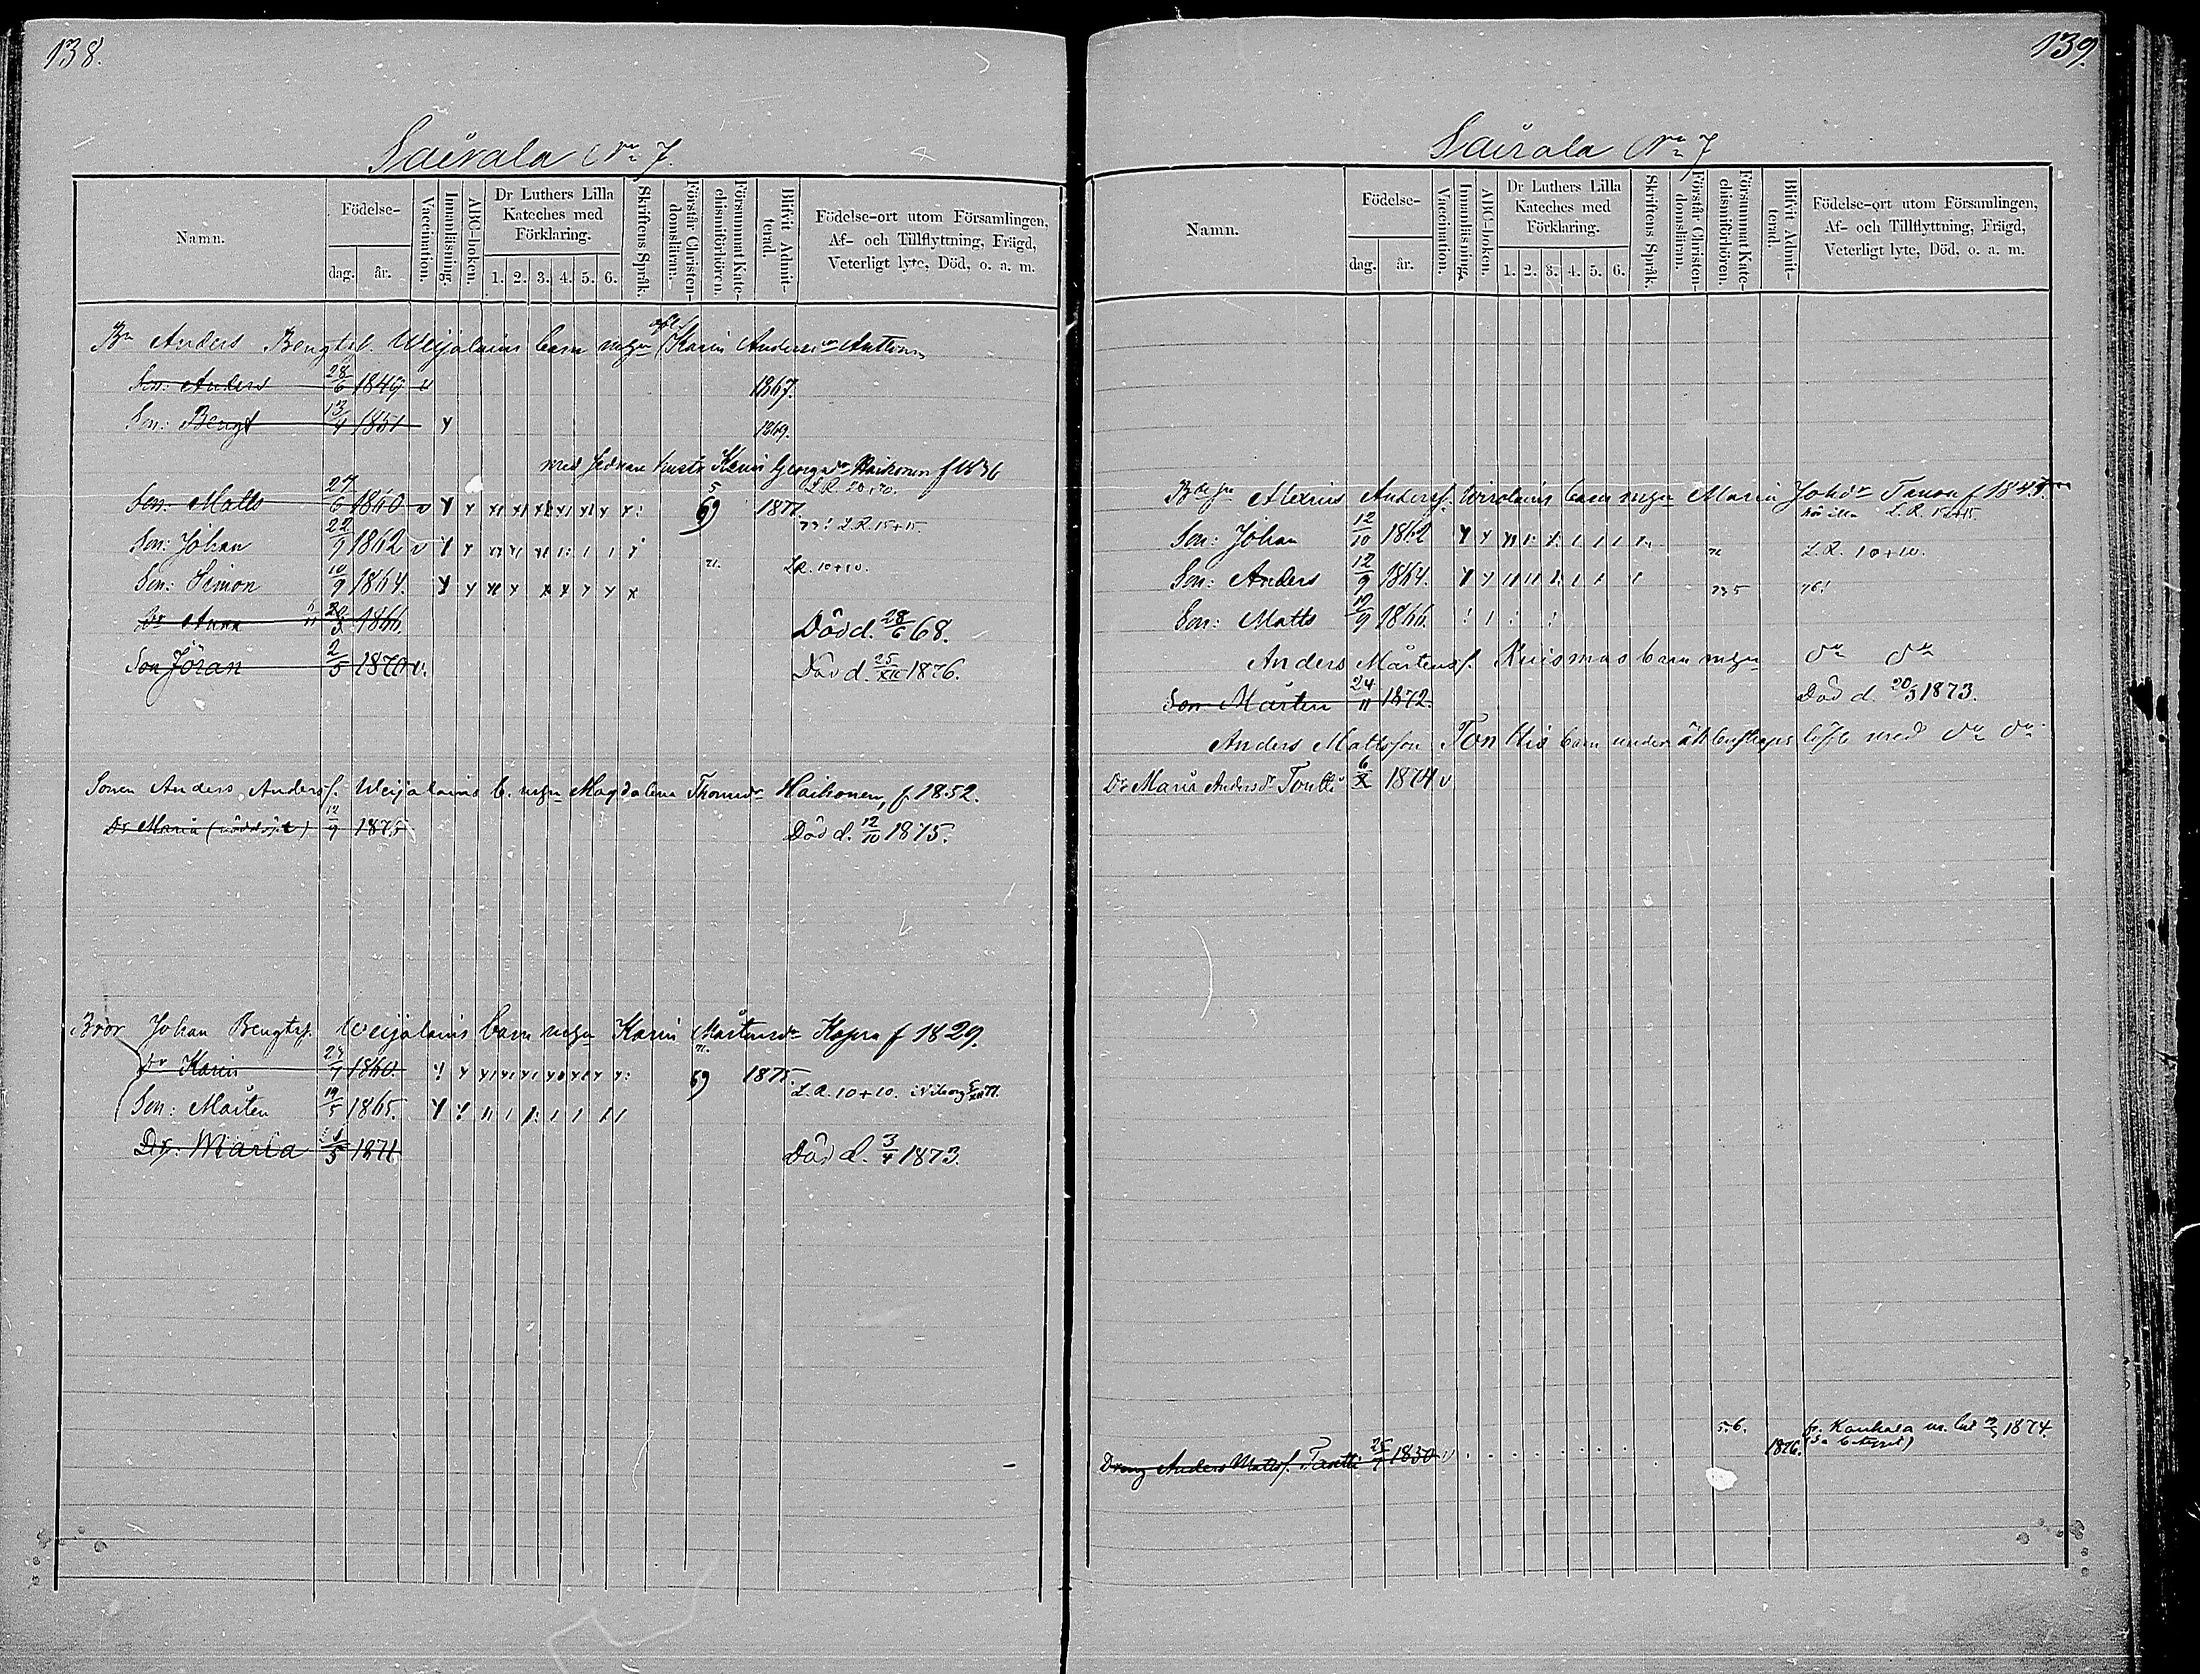 138.
Sairala No 7.
Namn.
Födelse-
dag. år.
Vaccination.
Innanläsning.
ABC-boken.
Dr Luthers Lilla Kateches med Förklaring.
1. 2. 3. 4. 5. 6.
Skriftens Språk.
Förstår Christendomsläran.
Försummat Katechismiförhören.
Blifvit Admitterad.
Födelse-ort utom Församlingen, Af- och Tillflyttning, Frägd, Veterligt lyte, Död, o. a. m.
Bn Anders Bengtss. Weijalains barn m. Karin Andersdr Anttonen
Son: Anders 28/6 1849 v 1867.
Son: Bengt 13/4 1851 1869.
med sednare hustr Karin Georgsdr Haikonen f 1836
Son: Matts 27/6 1860 v 69 1877. L.R. 20+20.
Son: Johan 22/9 1862 v L.R. 15+15
Son: Simon 10/9 1864. L.R. 10+10.
Dr Anna 20/3 1866. Död d. 28/6 68.
Son Jöran 2/5 1870 v. Död d. 25/XII 1876.
Sonen Anders Anderss. Weijalains b. m. Magdalena Thomasdr Haikonen, f. 1852.
Dr Maria (nöddöpt) 12/9 1875 Död d. 12/10 1875.
Bror Johan Bengtss. Weijalains barn m. Karin Mårtensdr Kopra f 1829.
Dr Karin 27/7 1860. 69 1875
Son: Mårten 19/5 1865. L.R. 10+10.
Dr: Maria 1/5 1871 Död d. 3/4 1873.
139.
Sairala No 7
Namn.
Födelse-
dag. år.
Vaccination.
Innanläsning.
ABC-boken.
Dr Luthers Lilla Kateches med Förklaring.
1. 2. 3. 4. 5. 6.
Skriftens Språk.
Förstår Christendomsläran.
Försummat Katechismiförhören.
Blifvit Admitterad.
Födelse-ort utom Församlingen, Af- och Tillflyttning, Frägd, Veterligt lyte, Död, o. a. m.
Alexius Anderss. barn m. Maria Johsdr Tanon f 1847
Son: Johan 12/10 1862 L.R. 15+15.
Son: Anders 12/9 1864. L.R. 10+10.
Son: Matts 19/9 1866.
Anders Mårtenss. Kuismas barn m. do do
Son Mårten 24/11 1872. Död d. 20/3 1873.
Anders Mattsson Tonttis barn under äktenskaps löfte med do do
Dr Maria Andersdr Tontti 6/X 1874 v
Dräng Anders Matss. Tontti 26/7 1850 v 5.6. 1876. fr. Kaukola 1874.